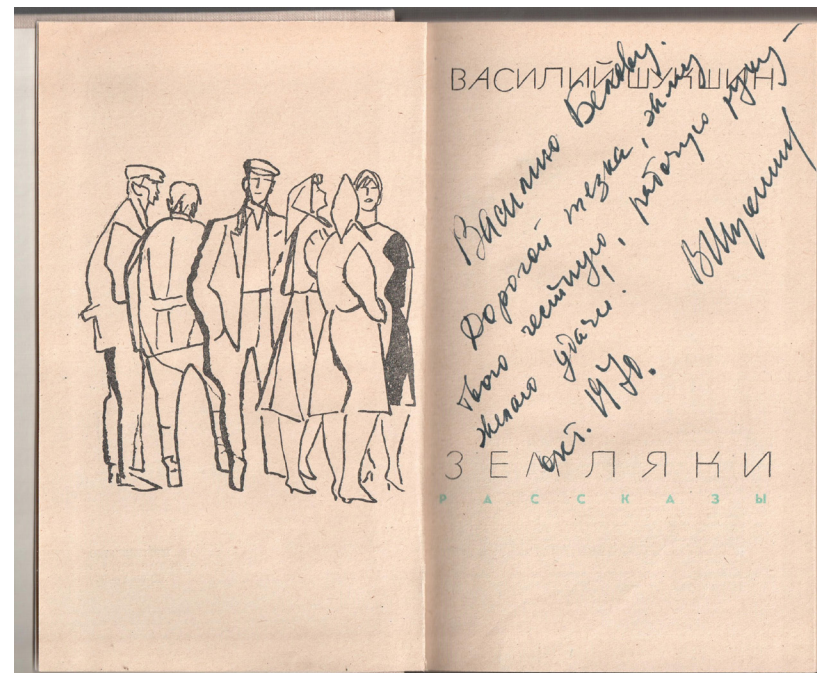 ВАСИЛИЙ ШУКШИН
Василию Белову.
Дорогой тезка, жму
твою честную, рабочую руку –
желаю удачи!
окт. 1970.
ВШукшин
ЗЕМЛЯКИ
РАССКАЗЫ